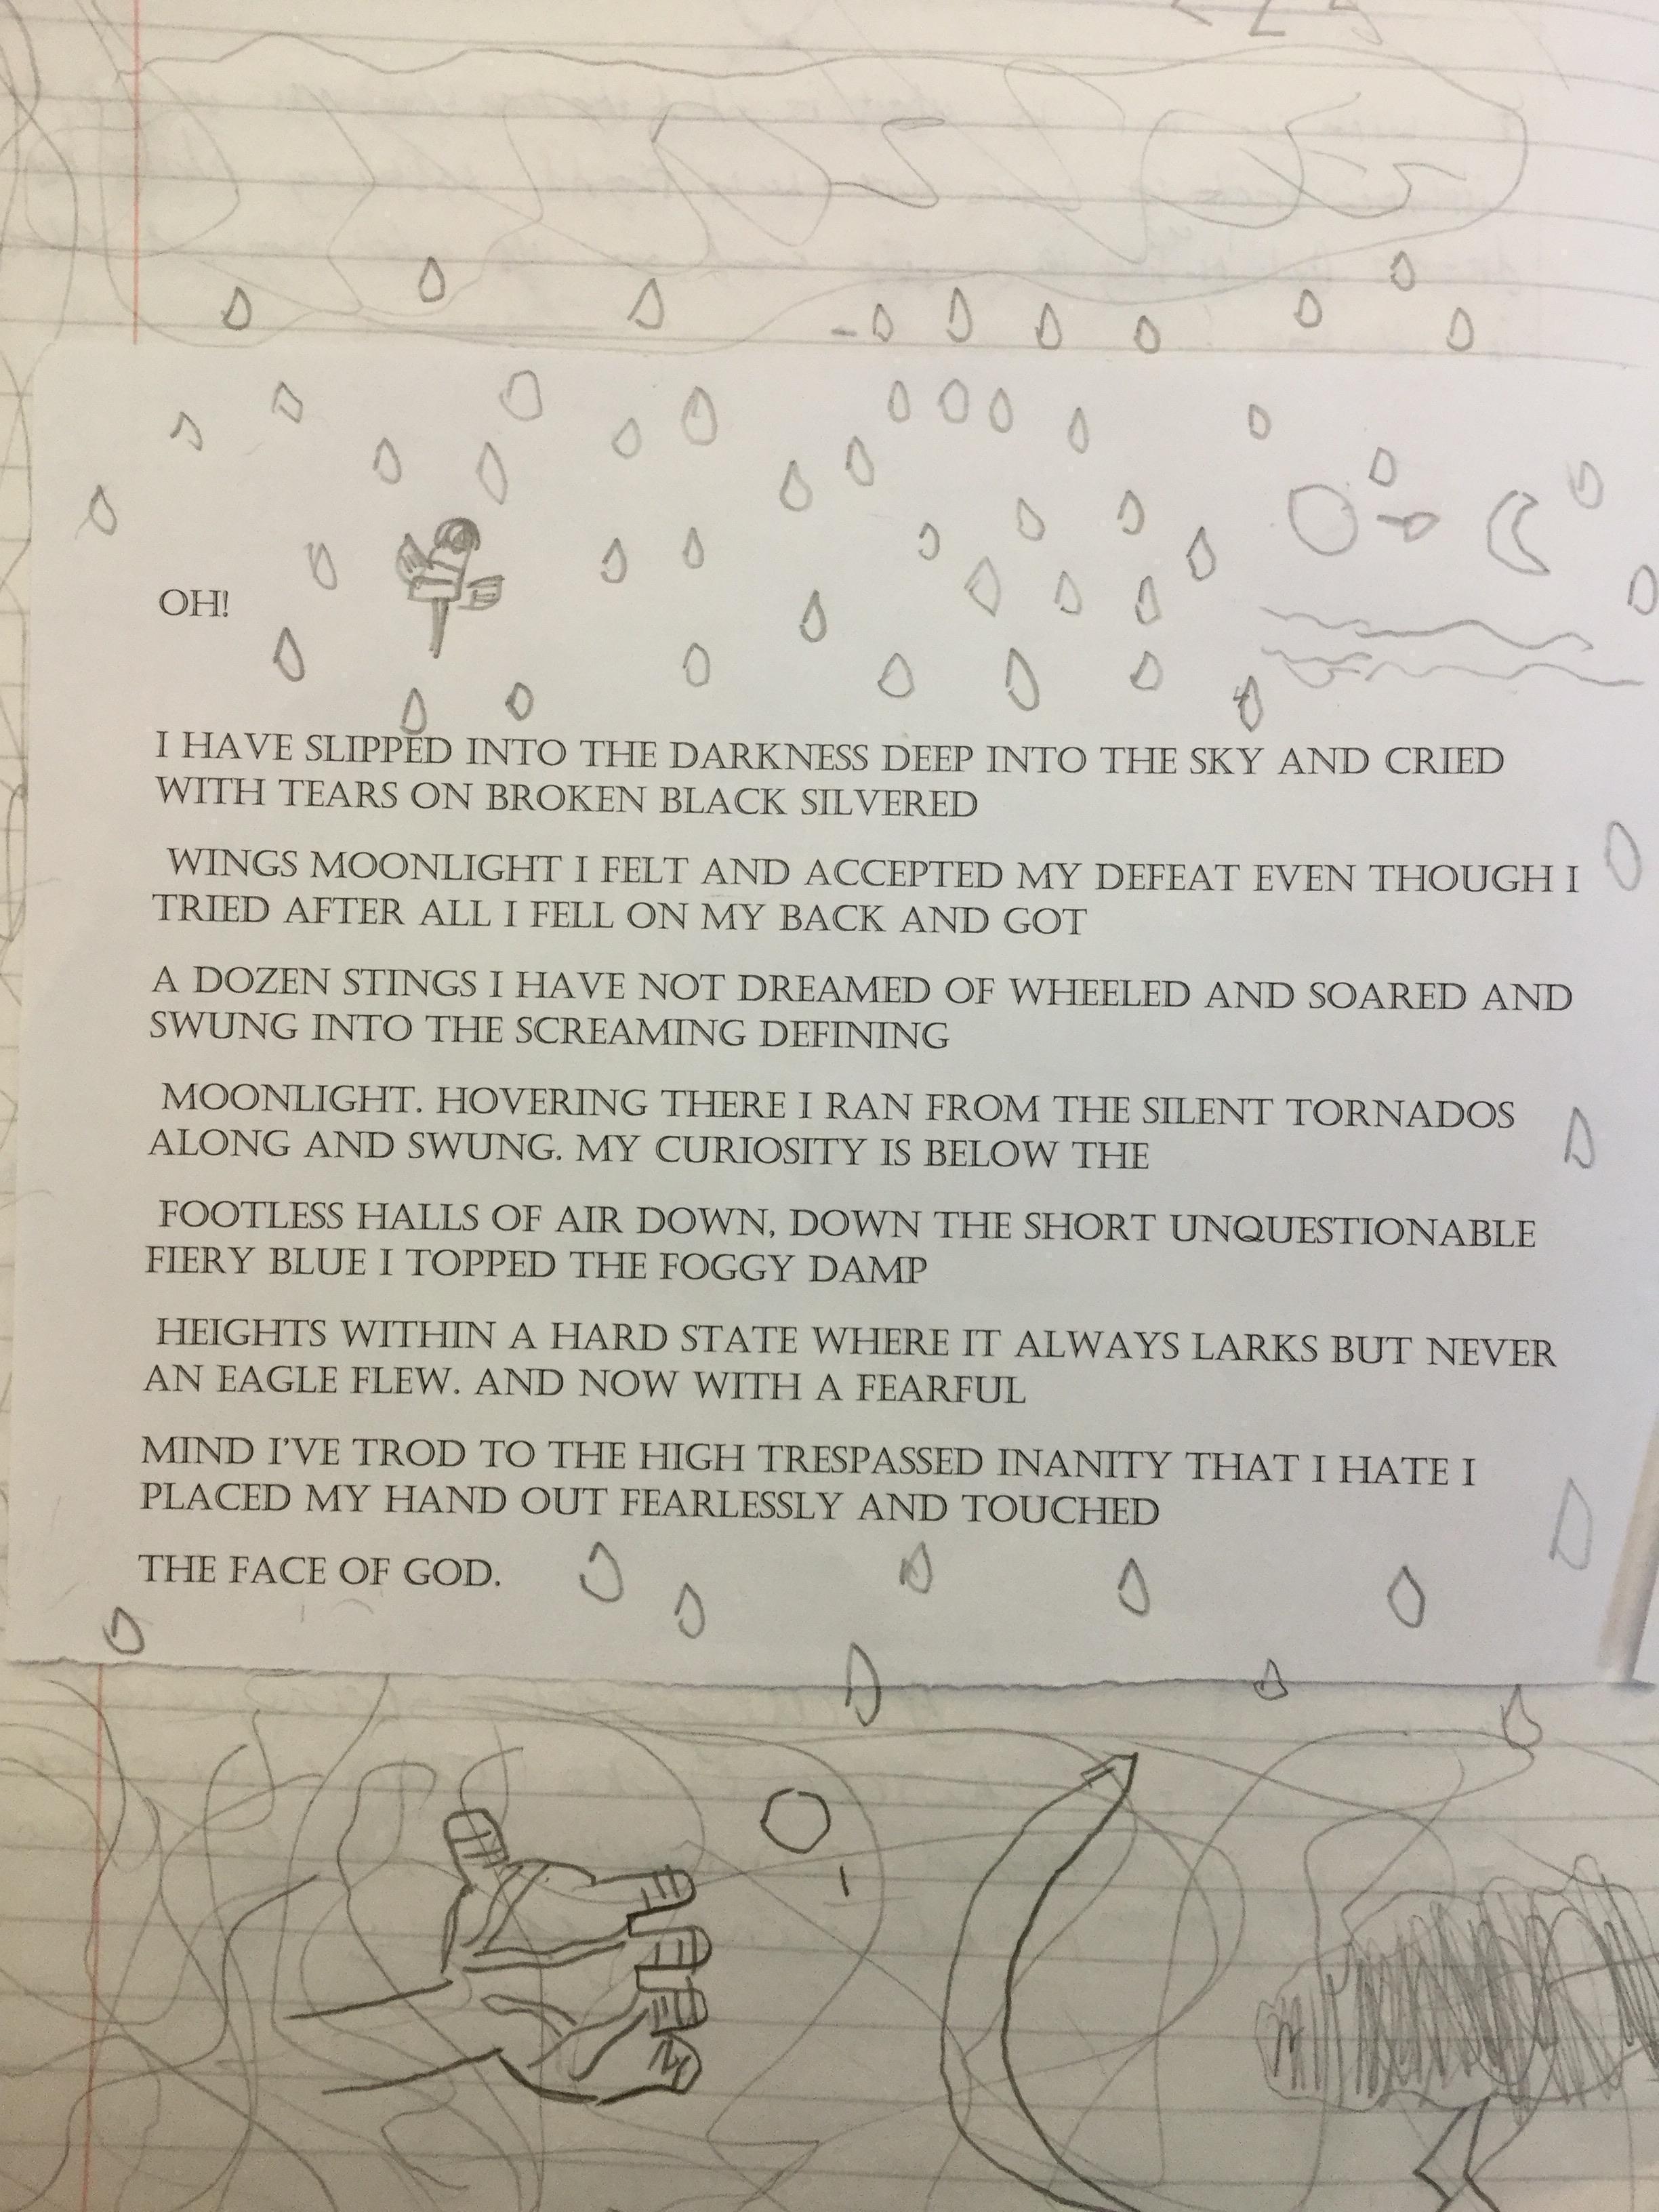 OH!
I HAVE SLIPPED INTO THE DARKNESS DEEP INTO THE SKY AND CRIED
WITH TEARS ON BROKEN BLACK SILVERED
WINGS MOONLIGHT I FELT AND ACCEPTED MY DEFEAT EVEN THOUGH I
TRIED AFTER ALL I FELL ON MY BACK AND GOT
A DOZEN STINGS I HAVE NOT DREAMED OF WHEELED AND SOARED AND
SWUNG INTO THE SCREAMING DEFINING
MOONLIGHT. HOVERING THERE I RAN FROM THE SILENT TORNADOS
ALONG AND SWUNG. MY CURIOSITY IS BELOW THE
FOOTLESS HALLS OF AIR DOWN, DOWN THE SHORT UNQUESTIONABLE
FIERY BLUE I TOPPED THE FOGGY DAMP
HEIGHTS WITHIN A HARD STATE WHERE IT ALWAYS LARKS BUT NEVER
AN EAGLE FLEW. AND NOW WITH A FEARFUL
MIND I'VE TROD TO THE HIGH TRESPASSED INANITY THAT I HATE I
PLACED MY HAND OUT FEARLESSLY AND TOUCHED
THE FACE OF GOD.